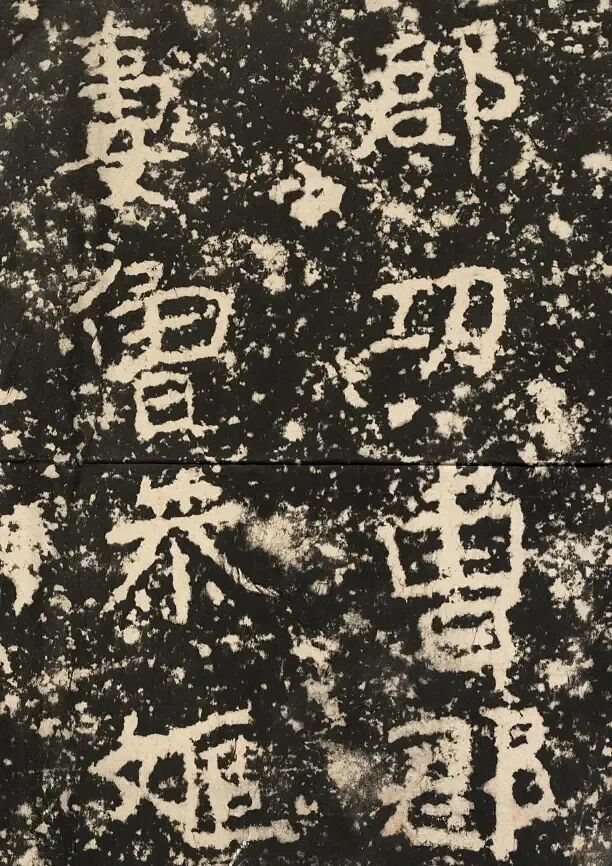 郡功曹郡
妻魯恭姬